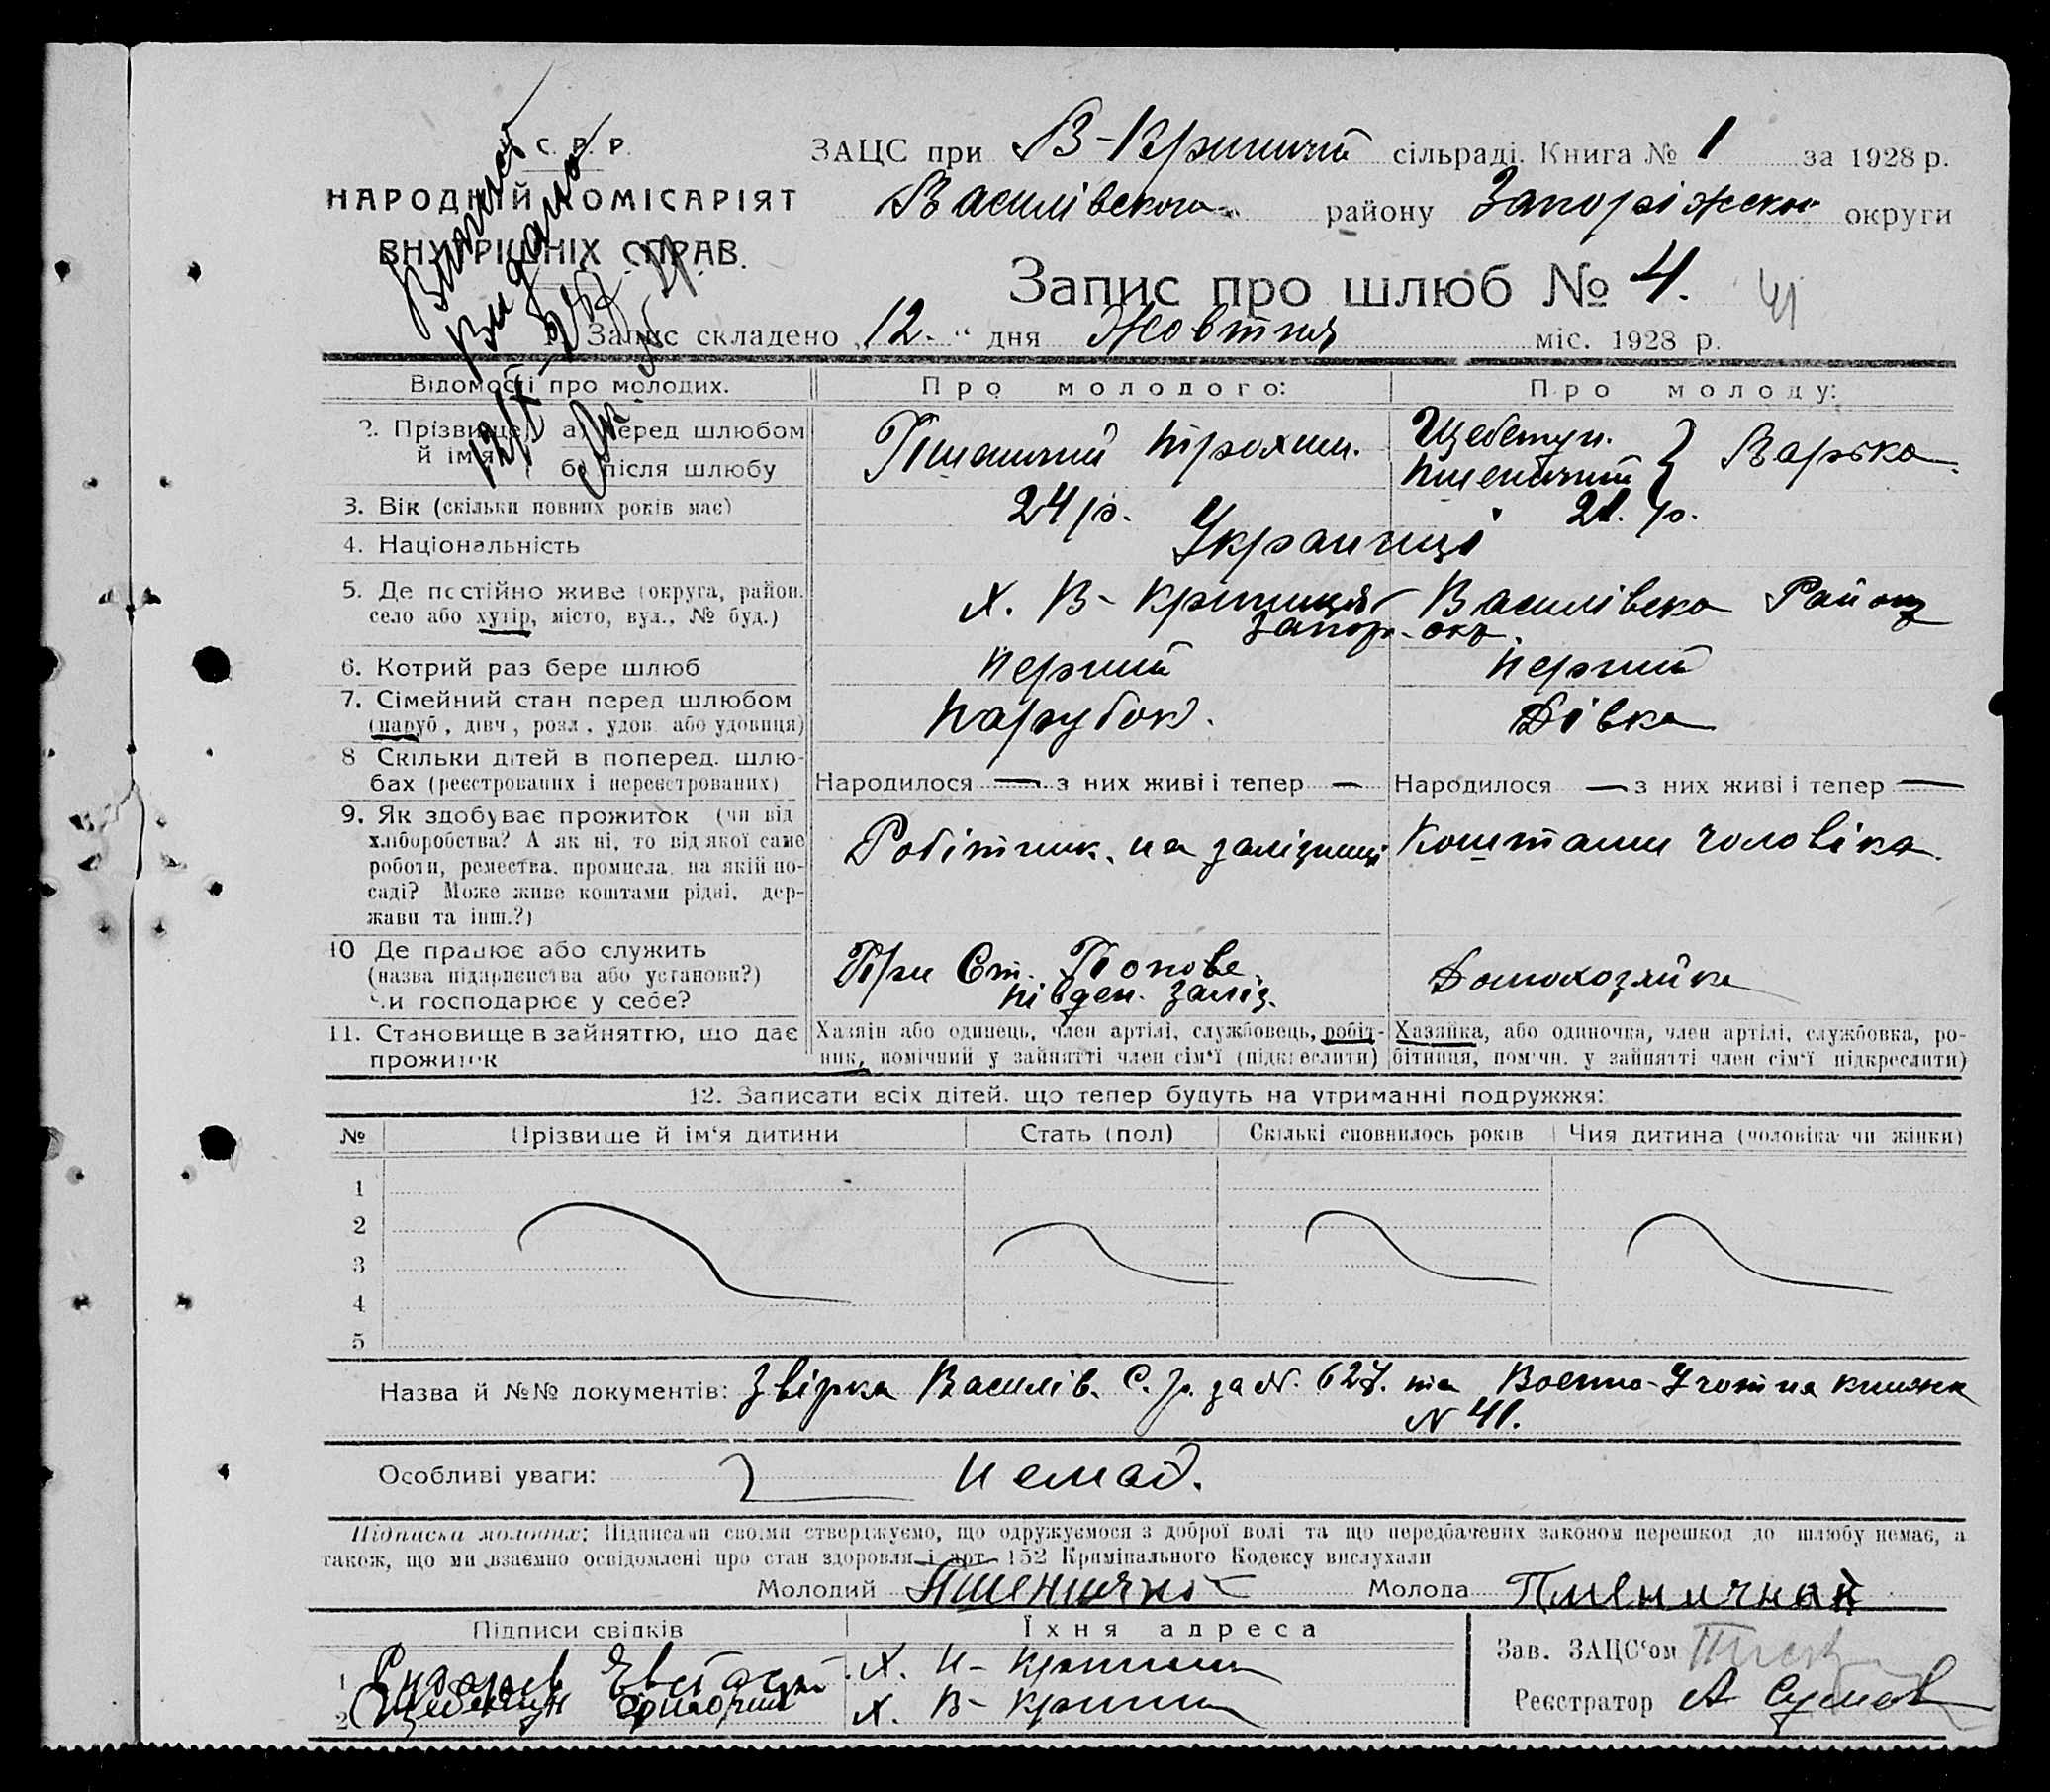 С. Р. Р.
НАРОДНІЙ КОМІСАРІЯТ
ВНУТРІШНІХ СПРАВ.
Виписку
Видано
ЗАЦС при В-Криничкій сільраді. Книга № 1 за 1928 р.
Василівського району Запоріжської округи
Запис про шлюб № 4.
41
1. Запис складено „12." дня Жовтня міс. 1928 р.
Відомості про молодих. Про молодого: Про молоду:
2. Прізвище й ім'я а) перед шлюбом Пшеничний Трохим. Щебетун. } Варька
б) після шлюбу Пшеничний
3. Вік (скільки повних років має) 24 р. 21. р.
4. Національність Українці
5. Де постійно живе (округа, район, село або хутір, місто, вул., № буд.) х. В-Криниця Василівськ Району
Запор. окр.
6. Котрий раз бере шлюб Перший Перший
7. Сімейний стан перед шлюбом Парубок. Дівка
(паруб, дівч, розл, удов або удовиця)
8 Скільки дітей в поперед. шлю-
бах (реєстрованих і нереєстрованих) Народилося — з них живі і тепер — Народилося — з них живі і тепер —
9. Як здобуває прожиток (чи від
хліборобства? А як ні, то від якої саме Робітник на залізниці Коштами чоловіка.
роботи, ремества, промисла, на якій по-
саді? Може живе коштами рідні, дер-
жави та інш.?)
10 Де працює або служить
(назва підприємства або установи?) При Ст. Попове Домохозяйка
чи господарює у себе? південн. заліз.
11. Становище в зайняттю, що дає Хазяїн або одинець, член артілі, службовець, робіт- Хазяйка, або одиночка, член артілі, службовка, ро-
прожиток ник, помічний у зайнятті член сім'ї (підкреслити) бітниця, помічн. у зайнятті член сім'ї підкреслити)
12. Записати всіх дітей, що тепер будуть на утриманні подружжя:
№ Прізвище й ім'я дитини Стать (пол) Скількі сповнилось років Чия дитина (чоловіка чи жінки)
1
2
3
4
5
Назва й №№ документів: Звірка Василів. С. р. за N. 627. та Воєнно-Учотна книжка
N 41.
Особливі уваги: Немає.
Підписка молодих: Підписами своїми стверджуємо, що одружуємося з доброї волі та що передбачених законом перешкод до шлюбу немає, а
також, що ми взаємно освідомлені про стан здоровля і арт. 152 Кримінального Кодексу вислухали
Молодий Пшенично Молода Пшеничная
Підписи свідків Їхня адреса
1 х. Н-Криниця Зав. ЗАЦС'ом
2 Щебетун Григорий х. В-Криниця Реєстратор А